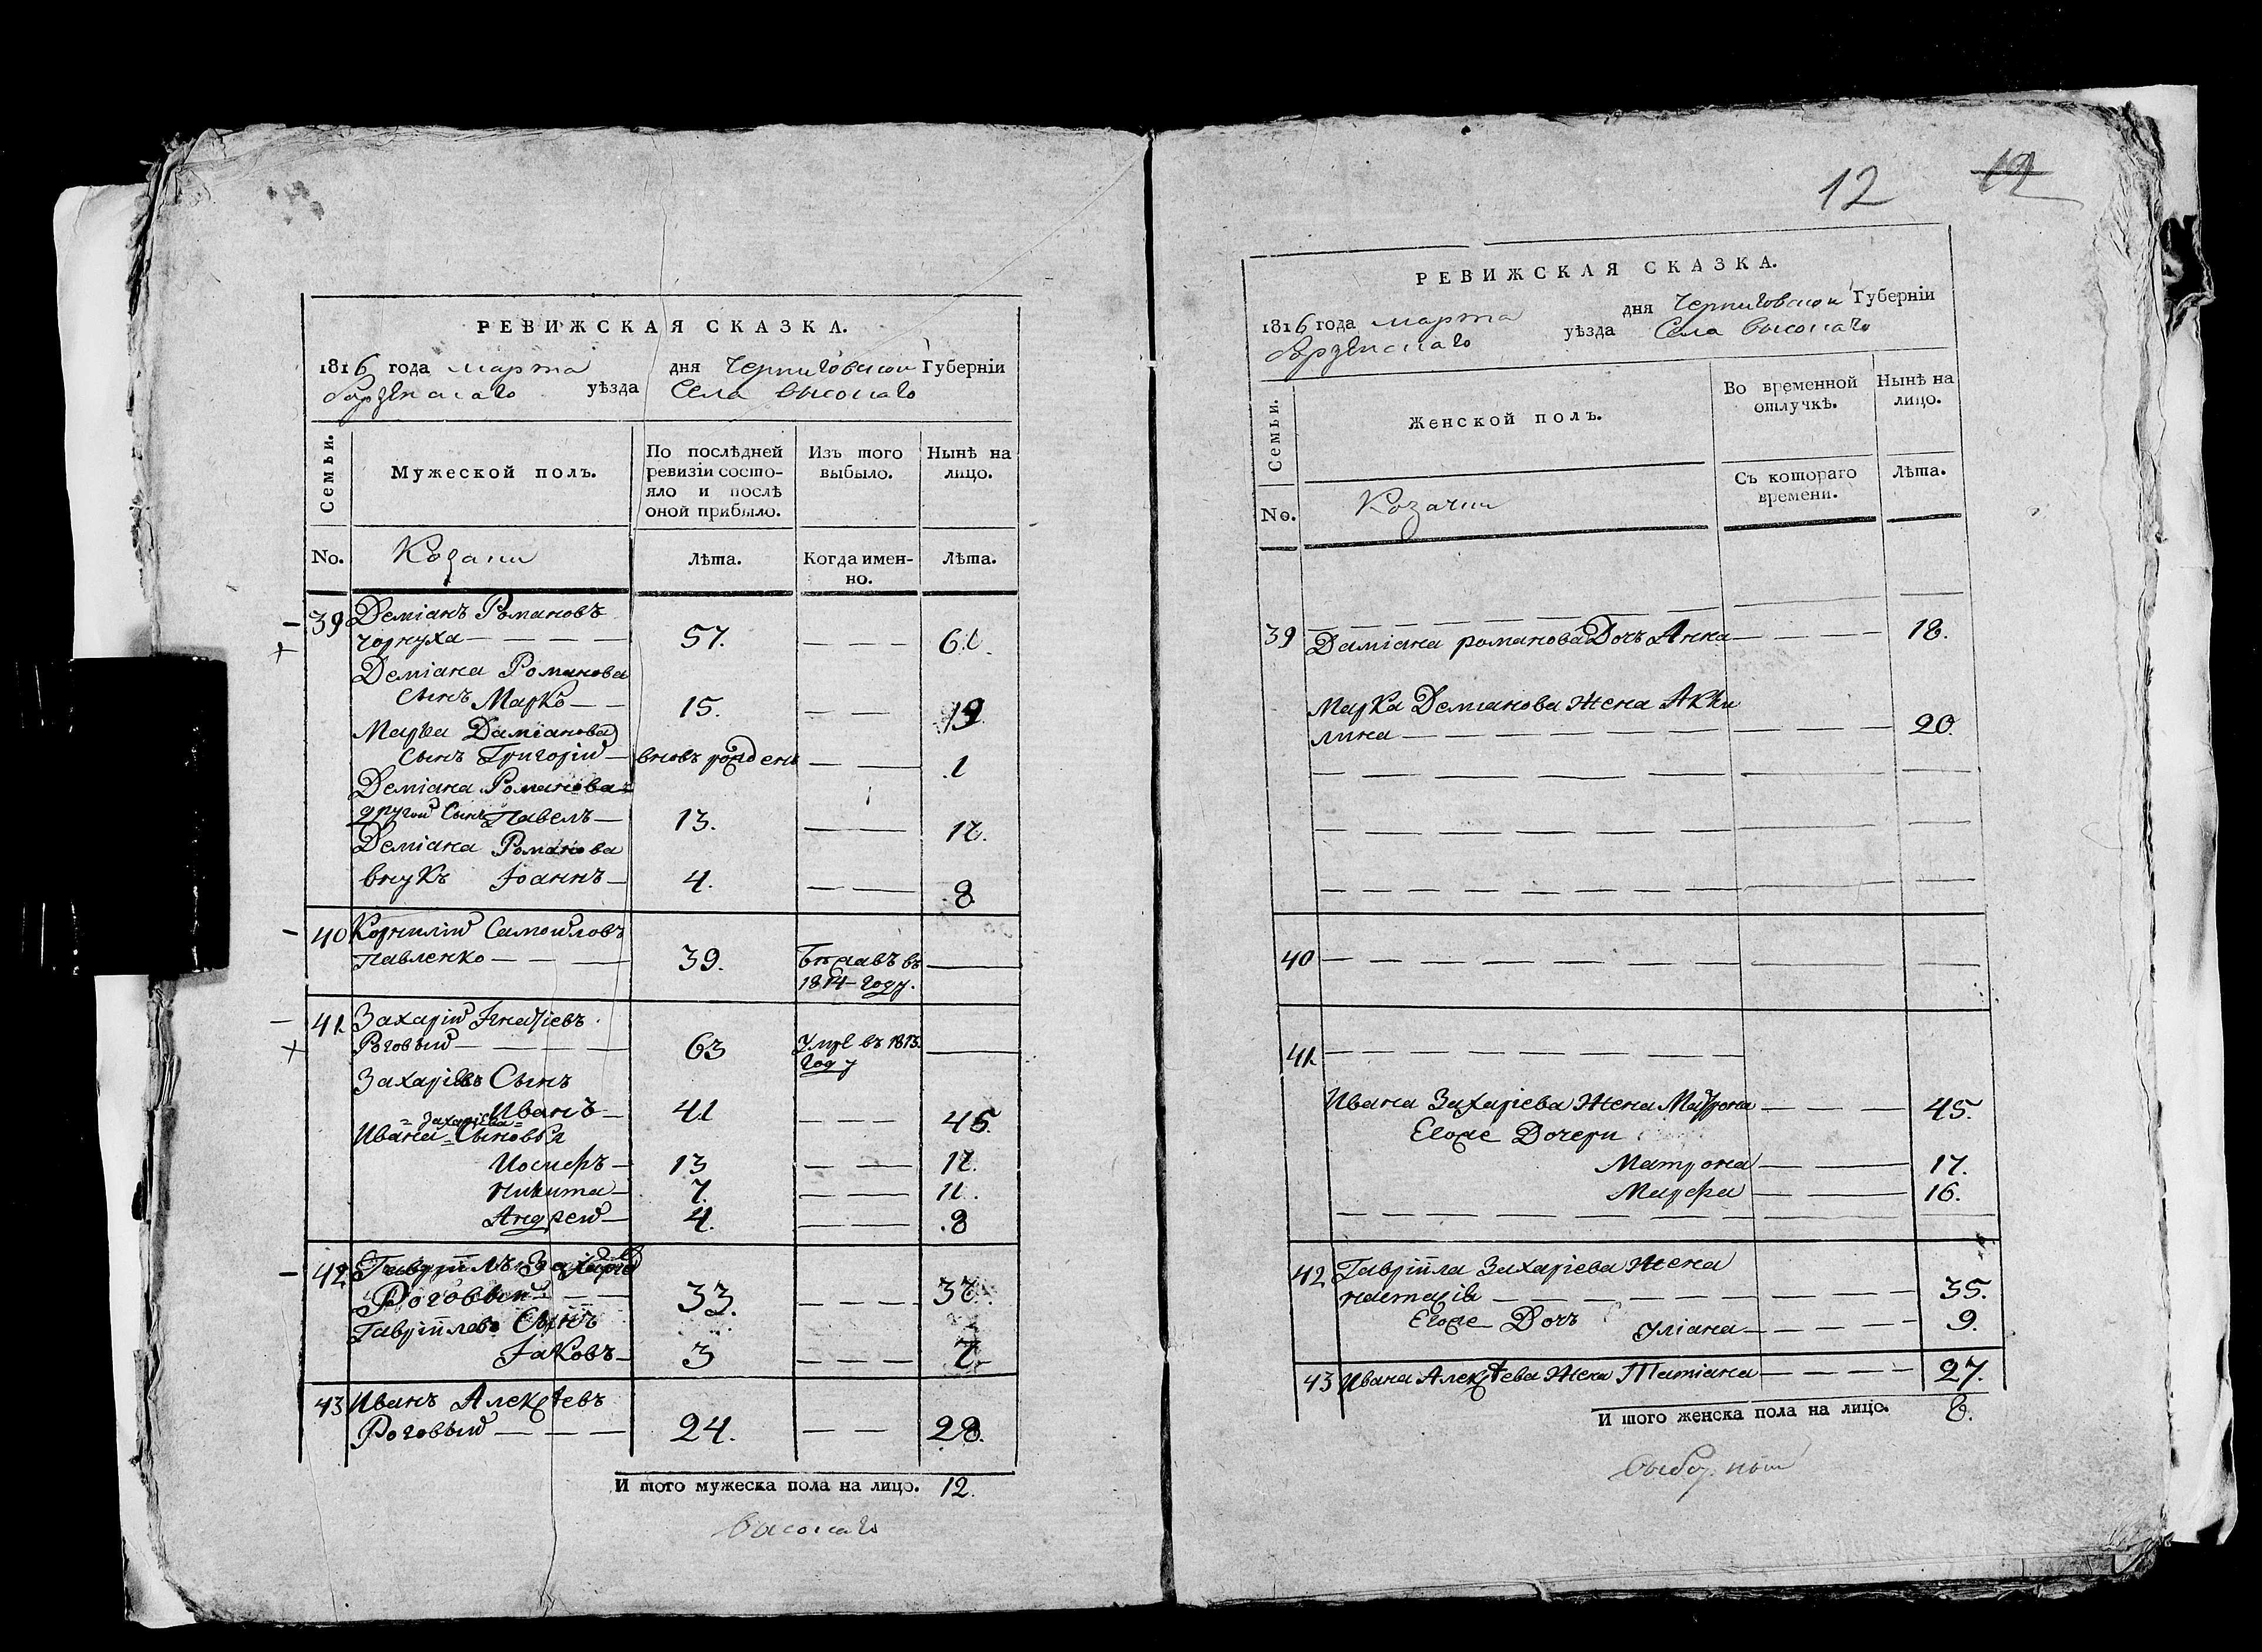 РЕВИЖСКАЯ СКАЗКА.
1816 года марта дня Черниговской Губернїи
Борзенскаго уѣзда Села Высокаго
Семьи.
Мужеской полъ.
По послѣдней ревизїи состо-
яло и послѣ
оной прибыло.
Изъ того
выбыло.
Нынѣ на
лицо.
No.
Козаки
Лѣта.
Когда имен-
но.
Лѣта.
39 Демїанъ Романовъ
Чорнуха 57. 61.
Демїана Романова
сынъ Марко 15. 19
Марка Дамїанова
сынъ Григорій вновь рожденъ 1
Демїана Романова
другой Сынъ Павелъ 13. 17.
Демїана Романова
внукъ Іоаннъ 4. 8
40 Корнилій Самойловъ
Павленко 39. Бѣжавъ въ
1814 году.
41 Захарій Ігнатіевъ
Роговый 63 Умре въ 1813.
году
Захаріевъ Сынъ
Иванъ 41 45.
Захаріева
Ивана Сыновья
Иосифъ 13 17.
Никита 7. 11.
Андрей 4. 8
42 Гавріилъ Захаріевъ
Роговый 33. 37.
Гавріиловъ Сынъ
Іаковъ 3 7.
43 Иванъ Алексѣевъ
Роговый 24. 28.
И того мужеска пола на лицо. 12.
Высокаго
12 12
РЕВИЖСКАЯ СКАЗКА.
1816 года марта дня Черниговской Губернїи
Борзенскаго уѣзда Села Высокаго
Семьи.
Женской полъ.
Во временной
отлучкѣ.
Нынѣ на
лицо.
No.
Козачки
Съ котораго
времени.
Лѣта.
39 Даміана Романова Дочь Анна 18.
Марка Деміанова Жена Аки
лина 20.
40
41
Ивана Захаріева Жена Матрона 45.
Егоже Дочери
Матрона 17.
Марфа 16.
42 Гавріила Захаріева Жена
Настасія 35.
Егоже Дочь Уліана 9.
43 Ивана Алексѣева Жена Татіана 27.
И того женска пола на лицо. 8.
выборный